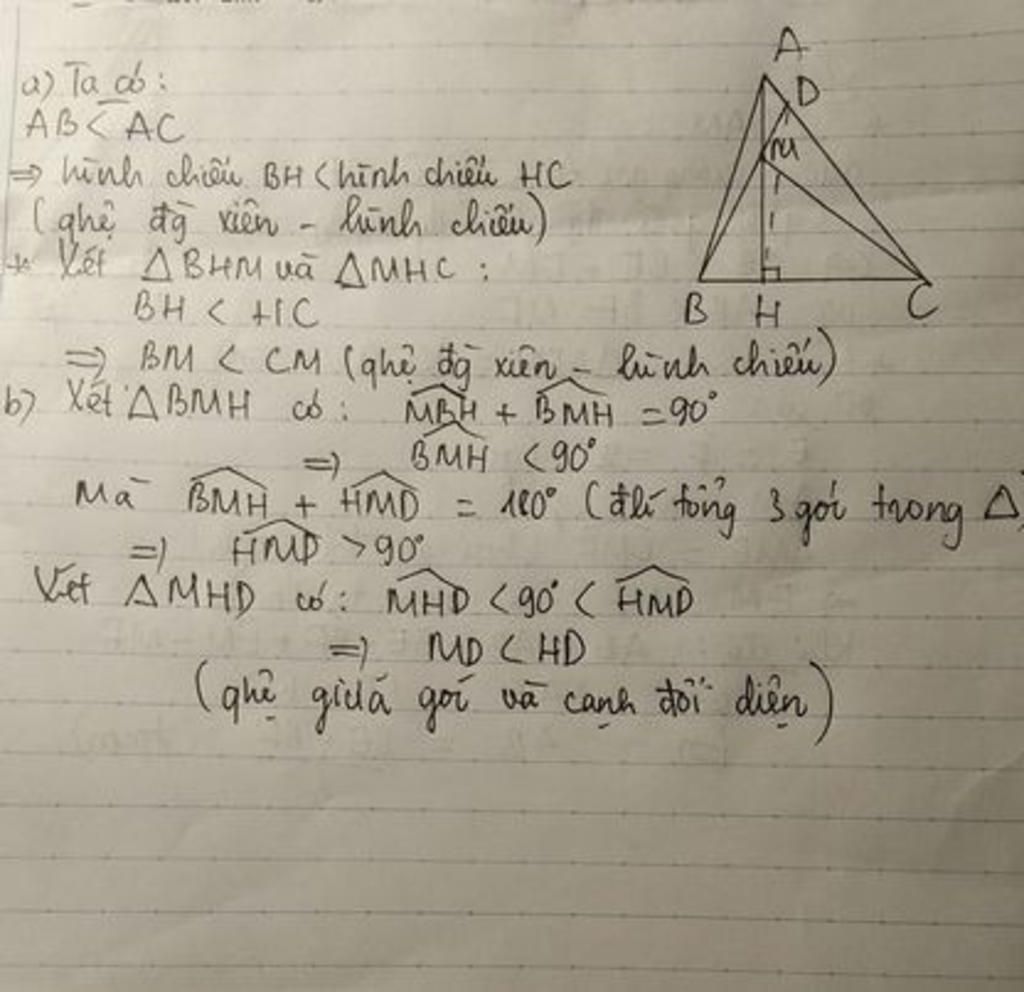 a) Ta có:
AB < AC
=> hình chiếu BH < hình chiếu HC
(qhệ đg xiên - hình chiếu)
* Xét ΔBHM và ΔMHC:
BH < HC
=> BM < CM (qhệ đg xiên - hình chiếu)
b) Xét ΔBMH có: MBH + BMH = 90°
=> BMH < 90°
Mà BMH + HMD = 180° (đlí tổng 3 gói trong Δ)
=> HMD > 90°
Xét ΔMHD có: MHD < 90° < HMD
=> MD < HD
(qhệ giữa gói và cạnh đối diện)
A
D
M
B H C